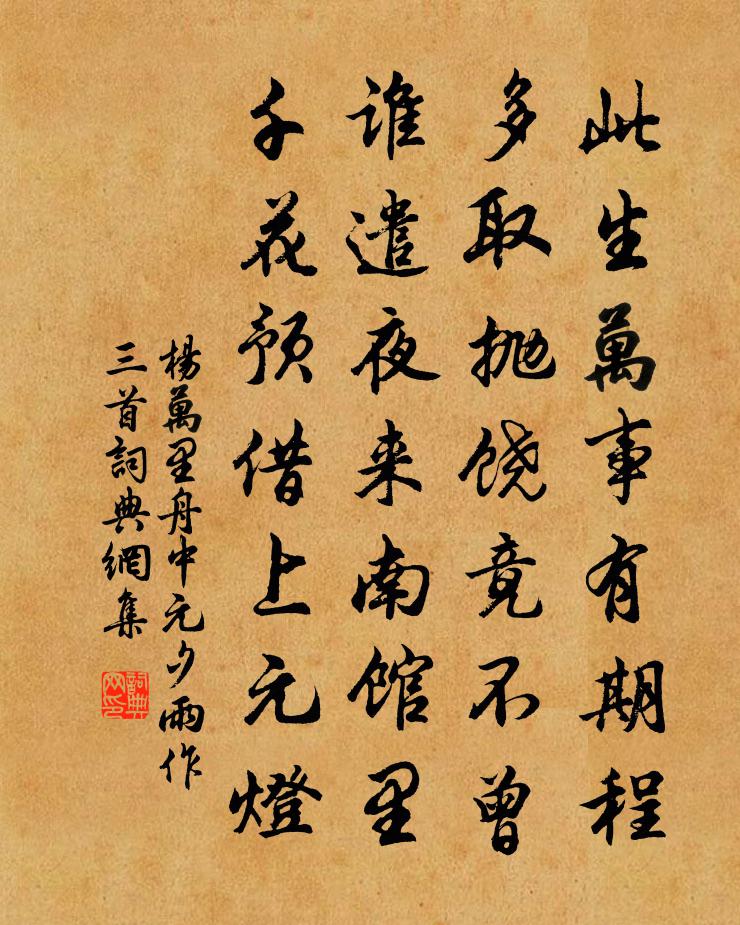 此生萬事有期程
多取抛饶竟不曾
谁遣夜来南馆里
千花预借上元燈
楊萬里舟中元夕雨作
三首詞典網集
詞典
网印